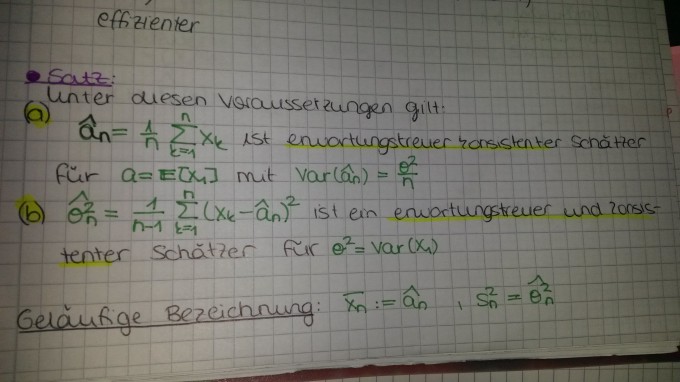 effizienter
• Satz:
Unter diesen Voraussetzungen gilt:
(a)
â_n = 1/n ∑_{k=1}^n X_k ist erwartungstreuer konsistenter Schätzer
für a = E[X_1] mit Var(â_n) = θ²/n
(b) θ̂²_n = 1/(n-1) ∑_{k=1}^n (X_k - â_n)² ist ein erwartungstreuer und konsis-
tenter Schätzer für θ² = Var(X_1)
Geläufige Bezeichnung: x̄_n := â_n , S²_n = θ̂²_n